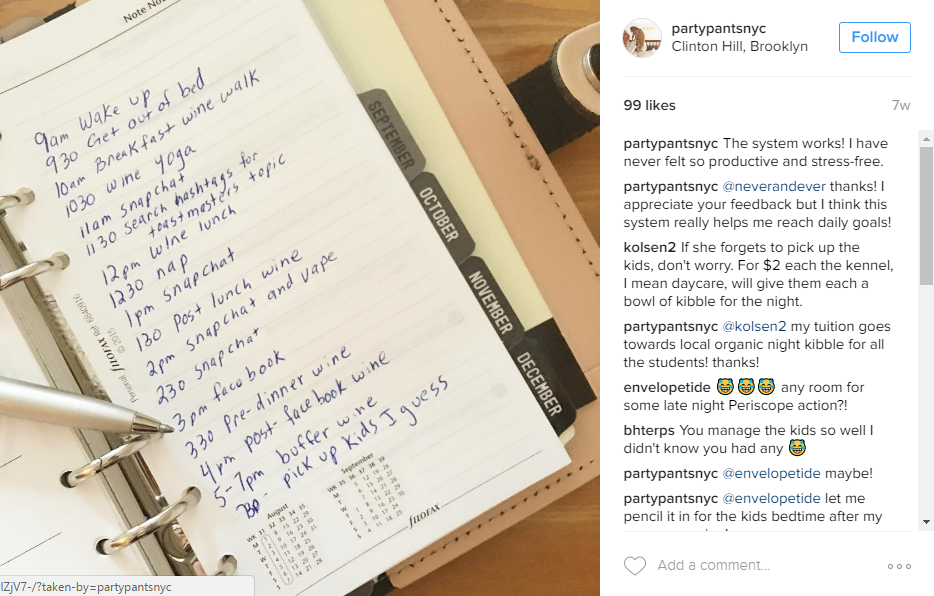 Note No
9am Wake up
930 Get out of bed
10am Breakfast wine walk
1030 wine yoga
11am snapchat
1130 search hashtags for
toastmasters topic
12pm wine lunch
1230 nap
1pm snapchat
130 post lunch wine
2pm snapchat and vape
230 snapchat
3pm facebook
330 pre-dinner wine
4pm post facebook wine
5-7pm buffer wine
8p- pick up kids I guess
SEPTEMBER
OCTOBER
NOVEMBER
DECEMBER
Personal filofax Ref 6840916
© 2015
August
WK 31 32 33 34 35
September
WK 35 36 37 38 39
filofax
partypantsnyc
Clinton Hill, Brooklyn
Follow
99 likes
7w
partypantsnyc The system works! I have
never felt so productive and stress-free.
partypantsnyc @neverandever thanks! I
appreciate your feedback but I think this
system really helps me reach daily goals!
kolsen2 If she forgets to pick up the
kids, don't worry. For $2 each the kennel,
I mean daycare, will give them each a
bowl of kibble for the night.
partypantsnyc @kolsen2 my tuition goes
towards local organic night kibble for all
the students! thanks!
envelopetide 😂😂😂 any room for
some late night Periscope action?!
bhterps You manage the kids so well I
didn't know you had any 😂
partypantsnyc @envelopetide maybe!
partypantsnyc @envelopetide let me
pencil it in for the kids bedtime after my
Add a comment...
lZjV7-/?taken-by=partypantsnyc